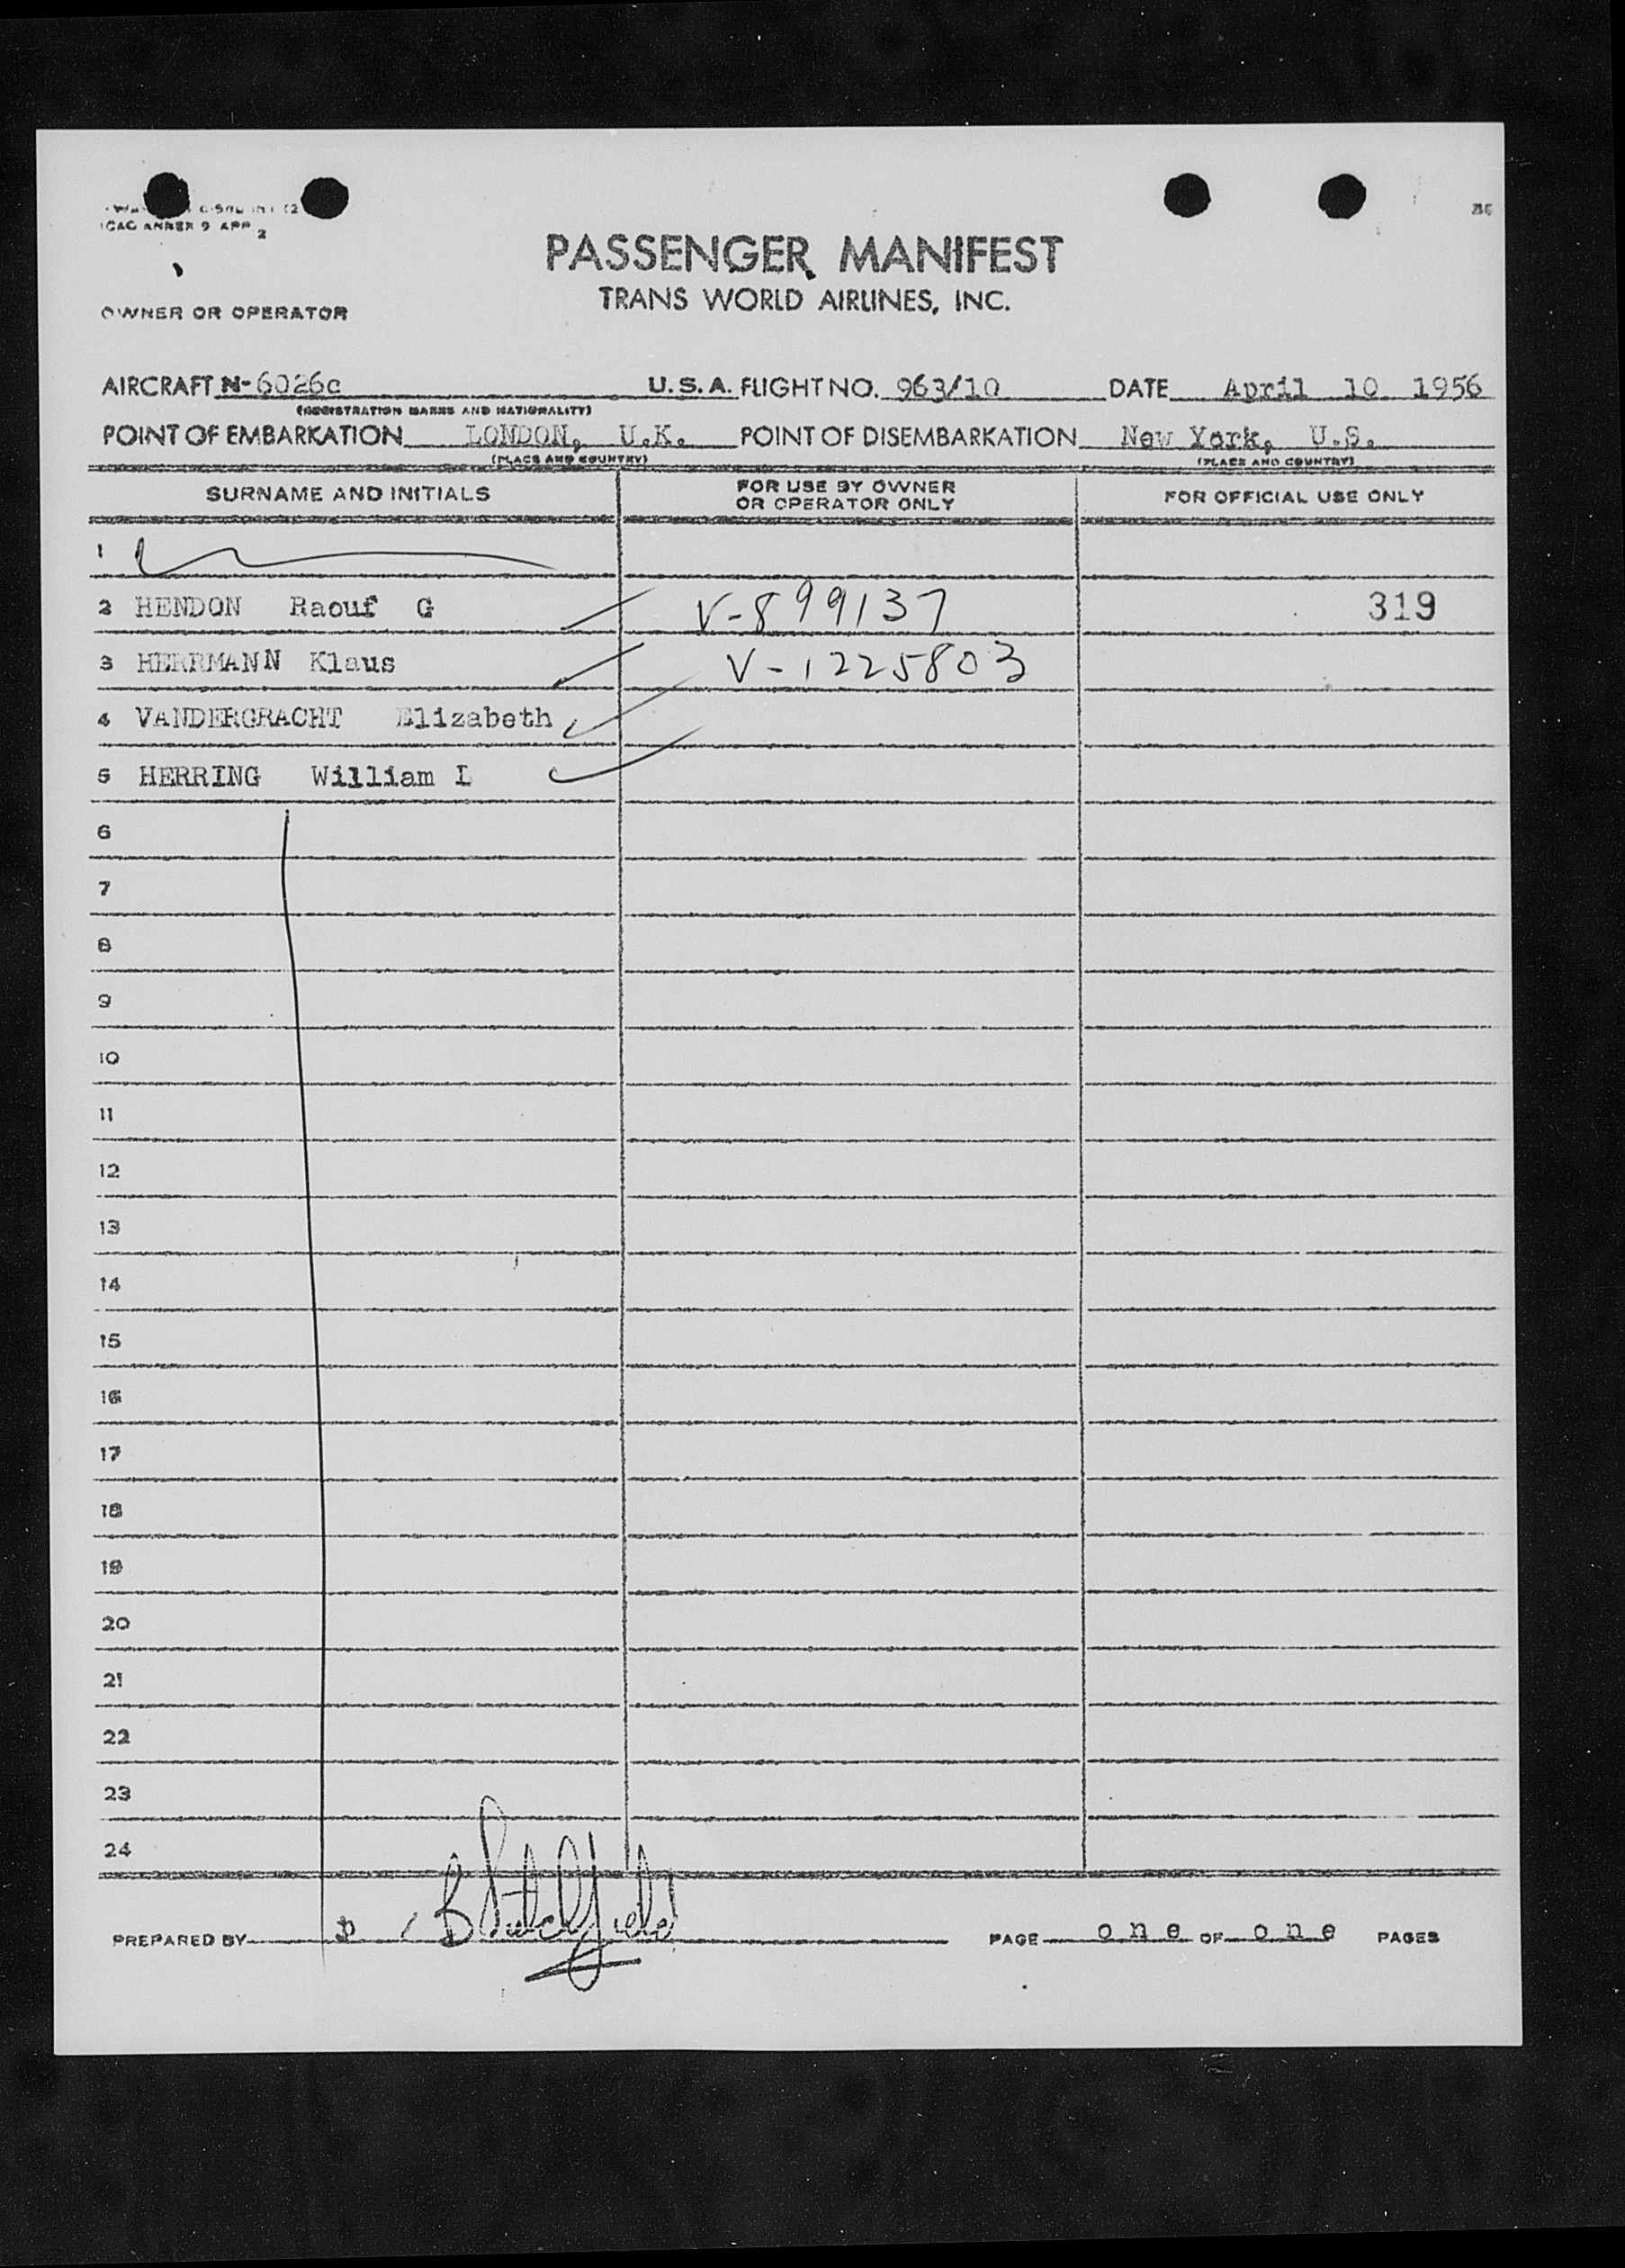 ICAO ANNEX 9 APP 2
PASSENGER MANIFEST
TRANS WORLD AIRLINES, INC.
OWNER OR OPERATOR
AIRCRAFT N-6026c U.S.A. FLIGHT NO. 963/10 DATE April 10 1956
(REGISTRATION MARKS AND NATIONALITY)
POINT OF EMBARKATION LONDON, U.K. POINT OF DISEMBARKATION New York, U.S.
(PLACE AND COUNTRY) (PLACE AND COUNTRY)
SURNAME AND INITIALS FOR USE BY OWNER OR OPERATOR ONLY FOR OFFICIAL USE ONLY
1
2 HENDON Raouf G V-899137 319
3 HERRMANN Klaus V-1225803
4 VANDERGRACHT Elizabeth
5 HERRING William L
6
7
8
9
10
11
12
13
14
15
16
17
18
19
20
21
22
23
24
PREPARED BY B Litchfield PAGE one OF one PAGES